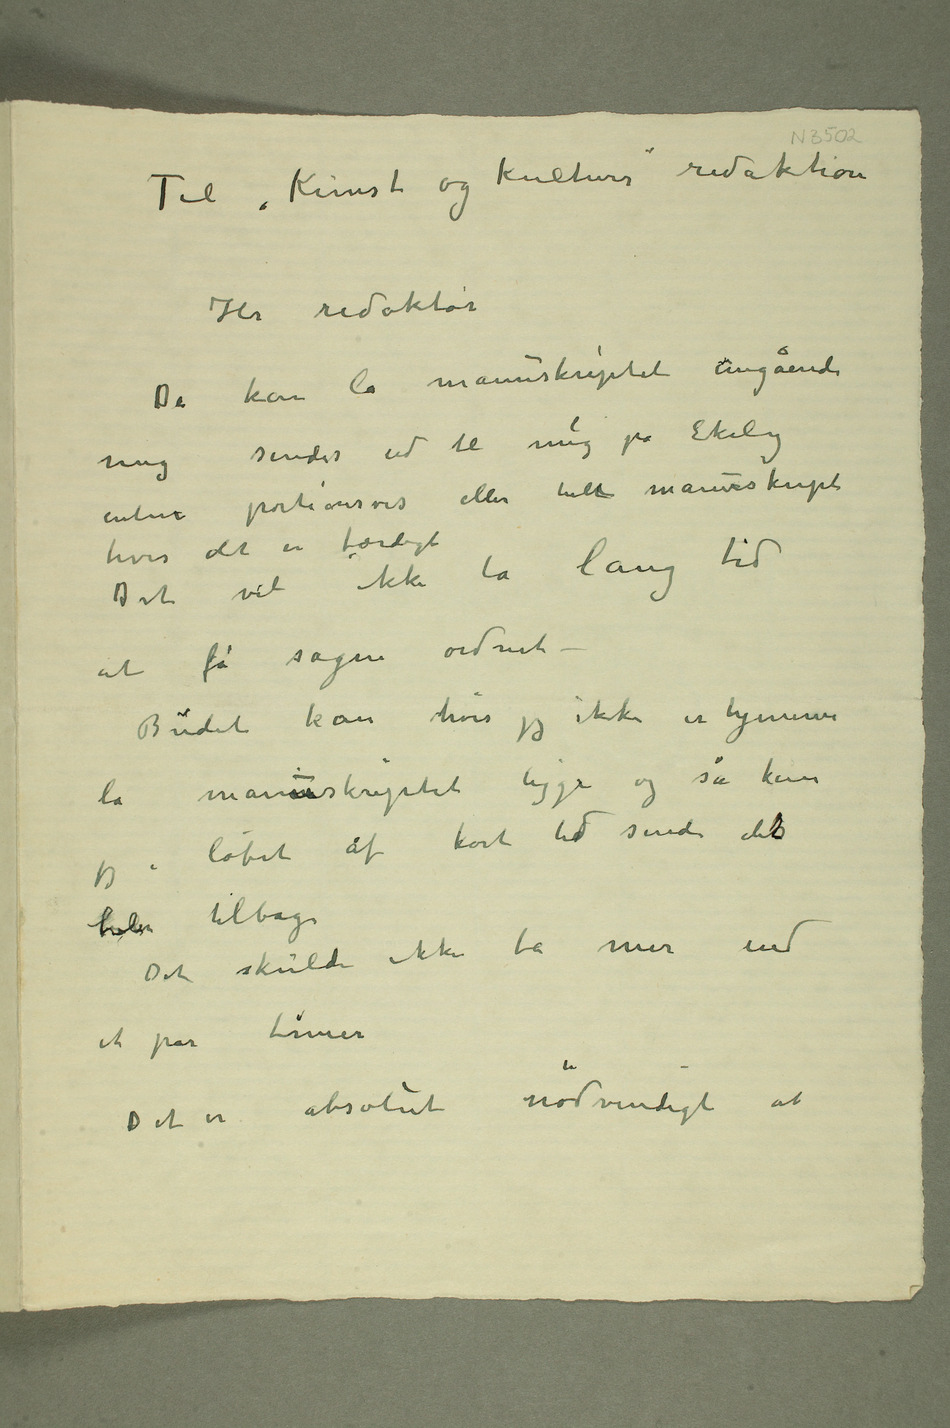 N3502
Til „Kunst og Kulturs" redaktion
Hr redaktør
De kan la manuskriptet angående
mig sendes ud til mig på Ekely
enten portionsvis eller helt manuskript
hvis det er færdigt
Det vil ikke ta lang tid
at få sagen ordnet –
Budet kan hvis jeg ikke er hjemme
la manuskriptet ligge og så kan
jeg i løbet af kort tid sende det
tilbage
Det skulde ikke ta mer end
et par timer
Det er absolut nødvendigt at